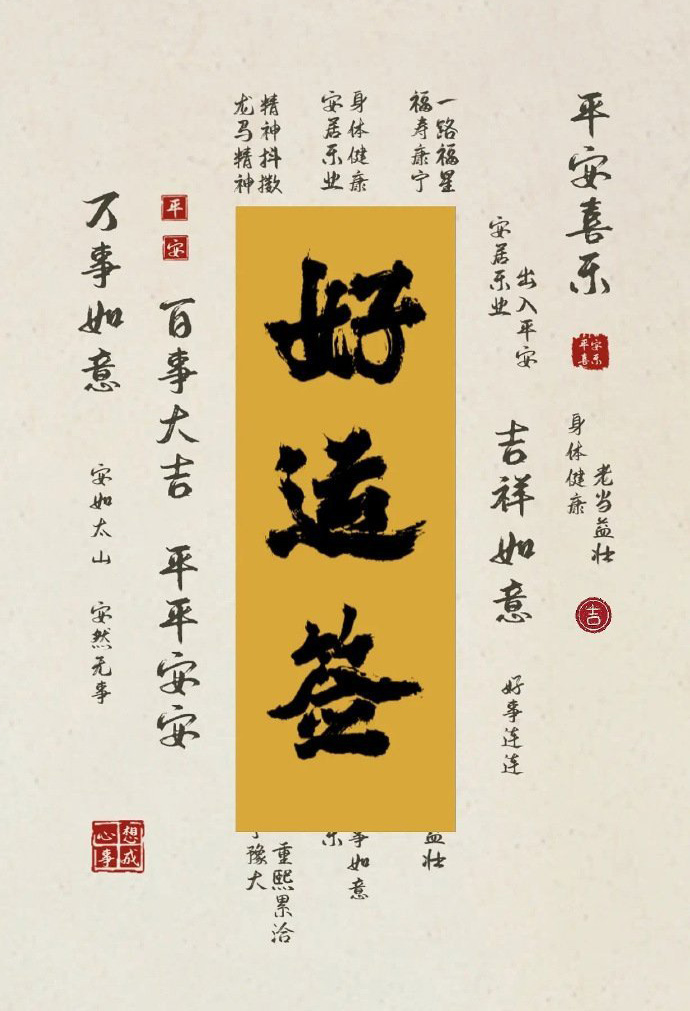 平安喜乐
平安
喜乐
老当益壮
身体健康
吉
出入平安
安居乐业
吉祥如意
好事连连
一路福星
福寿康宁
身体健康
安居乐业
精神抖擞
龙马精神
好运签
益壮
事如意
乐
重熙累洽
豫大
平
安
百事大吉
平平安安
万事如意
安如太山
安然无事
心想
事成